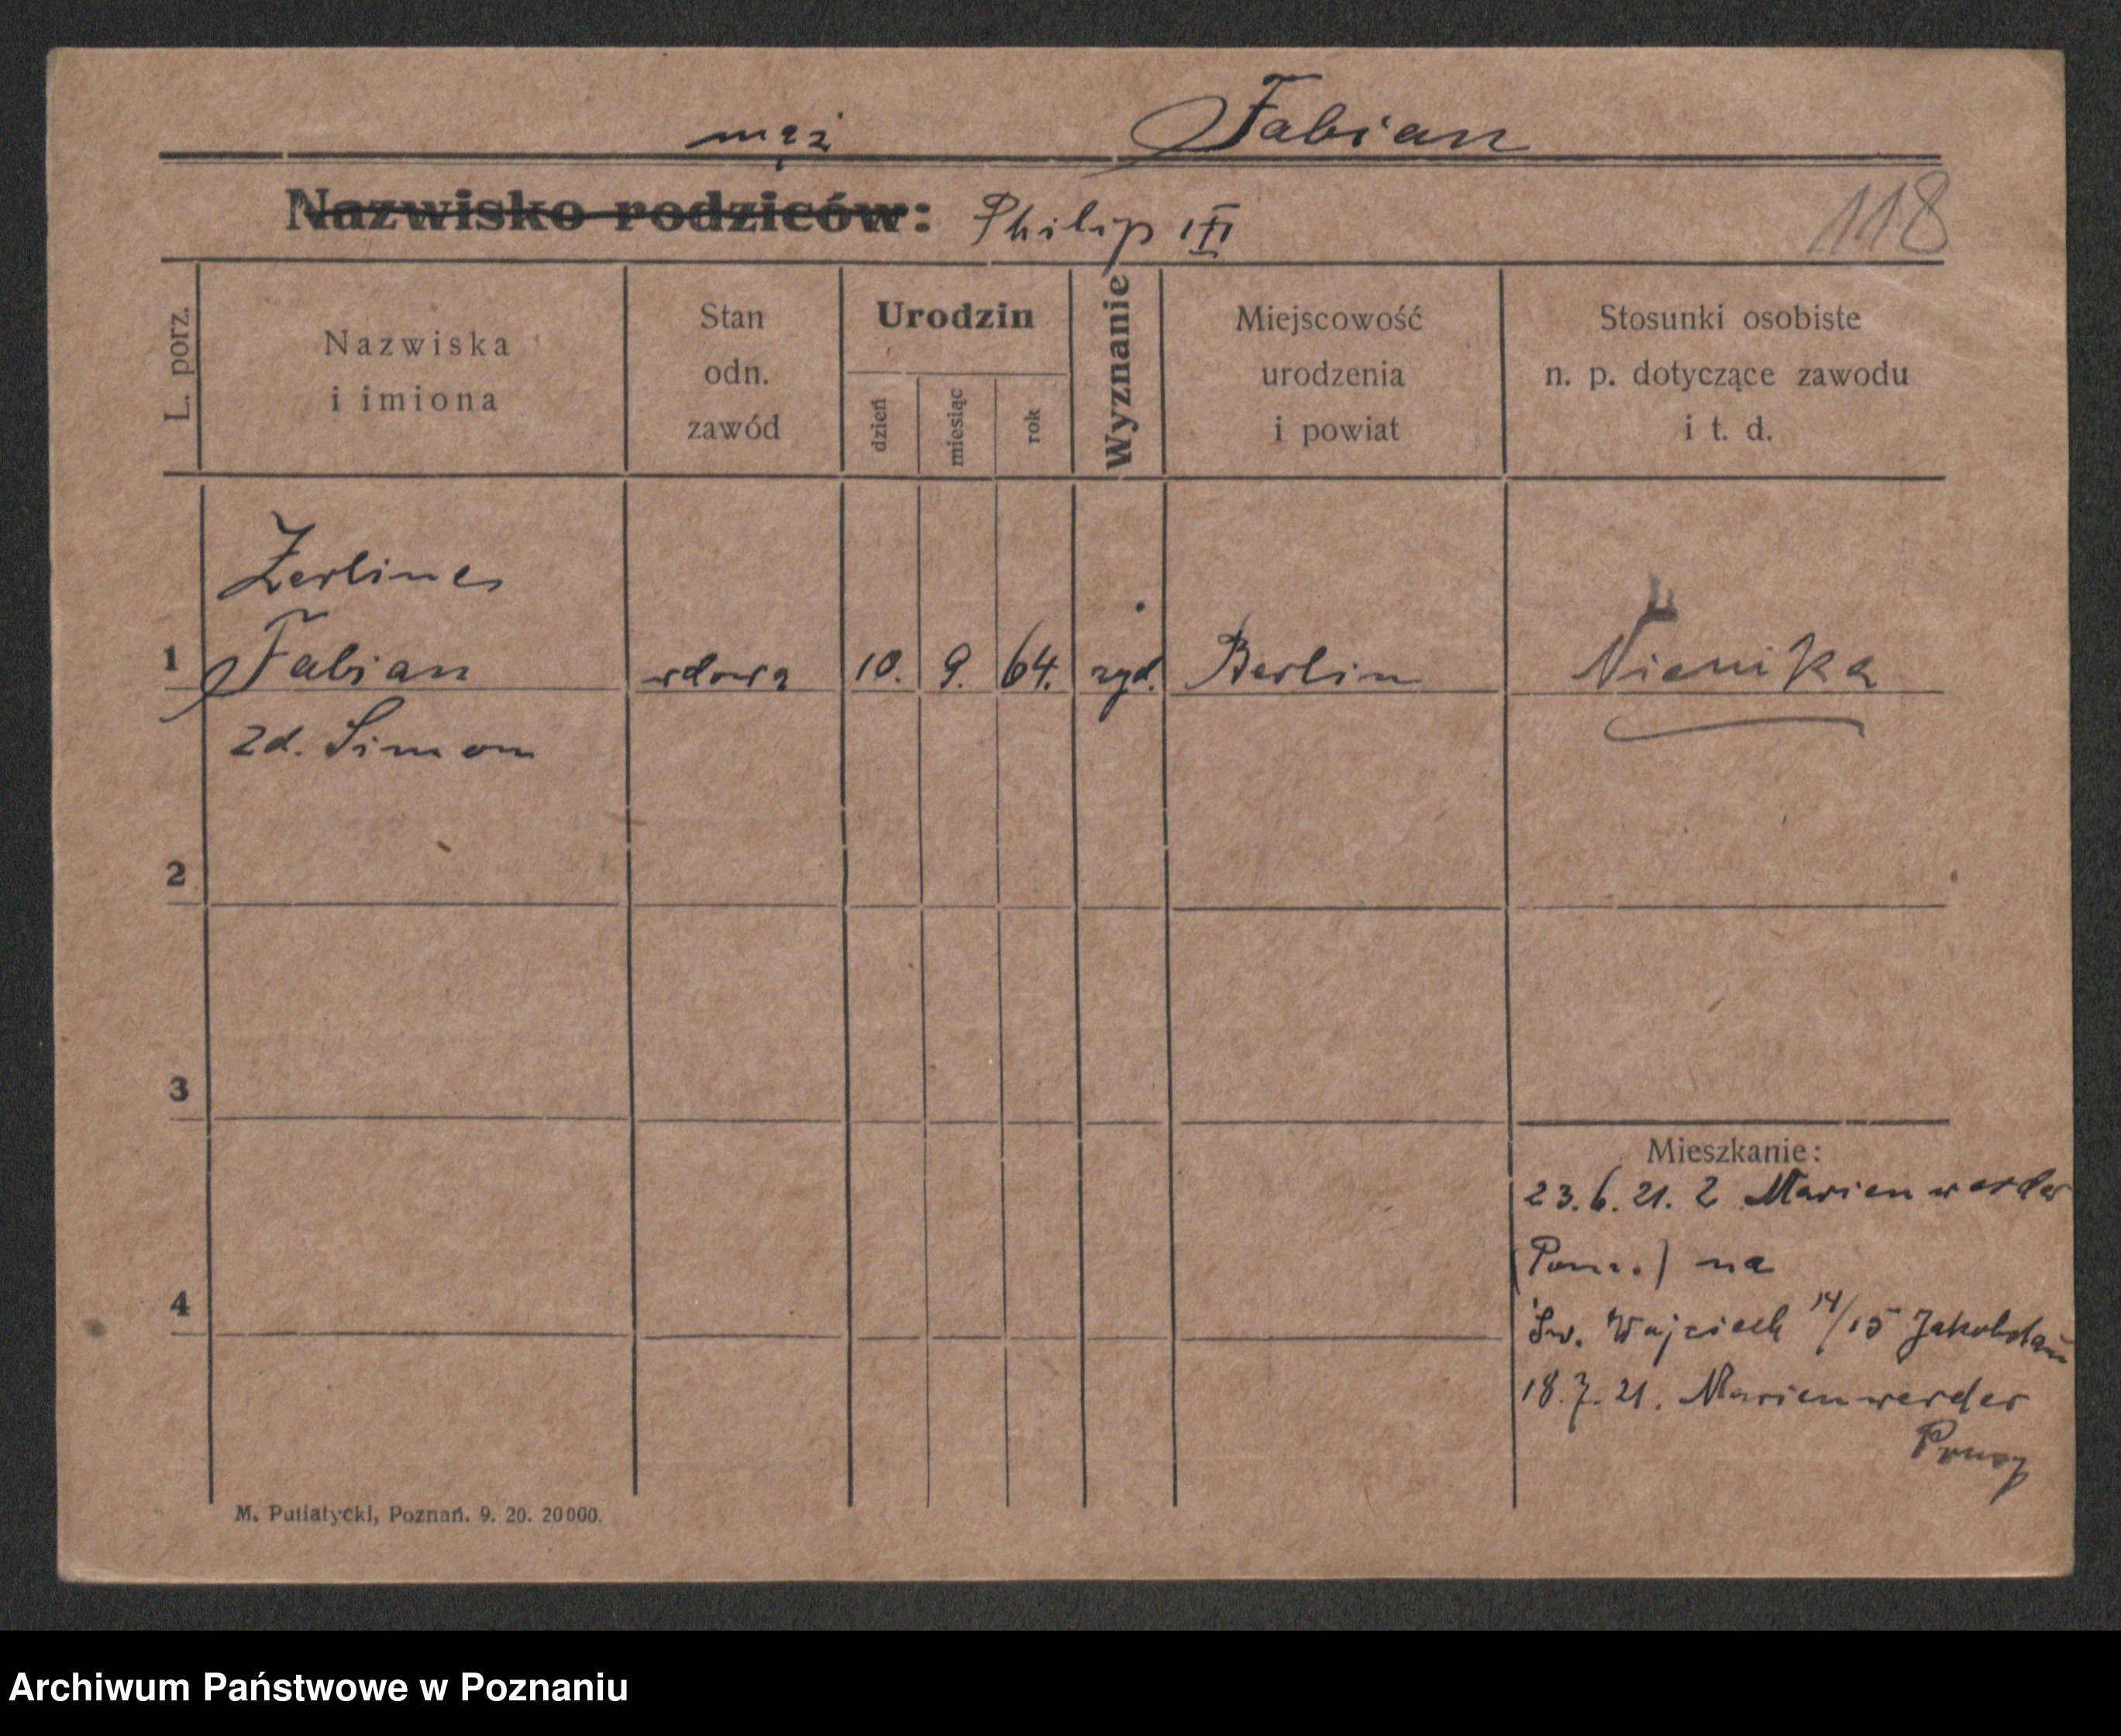 mąż Fabian
Nazwisko rodziców: Philip III
118
L. porz.
Nazwiska
i imiona
Stan
odn.
zawód
Urodzin
dzień
miesiąc
rok
Wyznanie
Miejscowość
urodzenia
i powiat
Stosunki osobiste
n. p. dotyczące zawodu
i t. d.
Zerline
1 Fabian wdowa 10. 9. 64. żyd. Berlin Niemka
zd. Simon
2
3
Mieszkanie:
23. 6. 21. z Marienwerder
(Pom.) na
4
Św. Wojciech 14/15 Jakobstam
18. 7. 21. Marienwerder
Prusy
M. Putiatycki, Poznań. 9. 20. 20000.
Archiwum Państwowe w Poznaniu